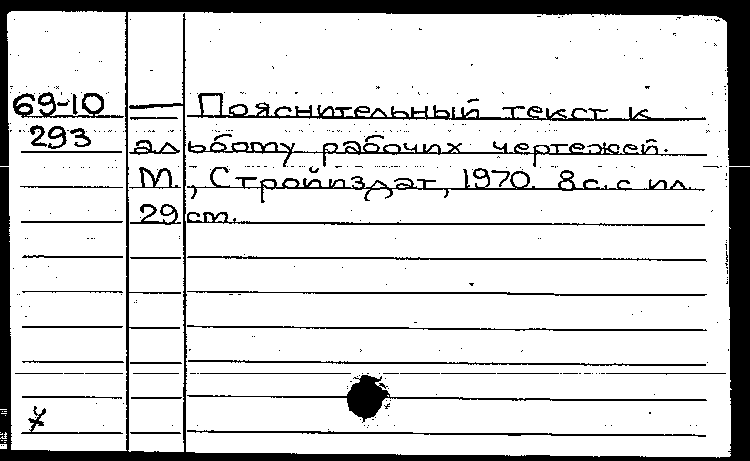 69-10 — Пояснительный текст к
293 альбому рабочих чертежей.
М., Стройиздат, 1970. 8 с. с ил.
29 см.